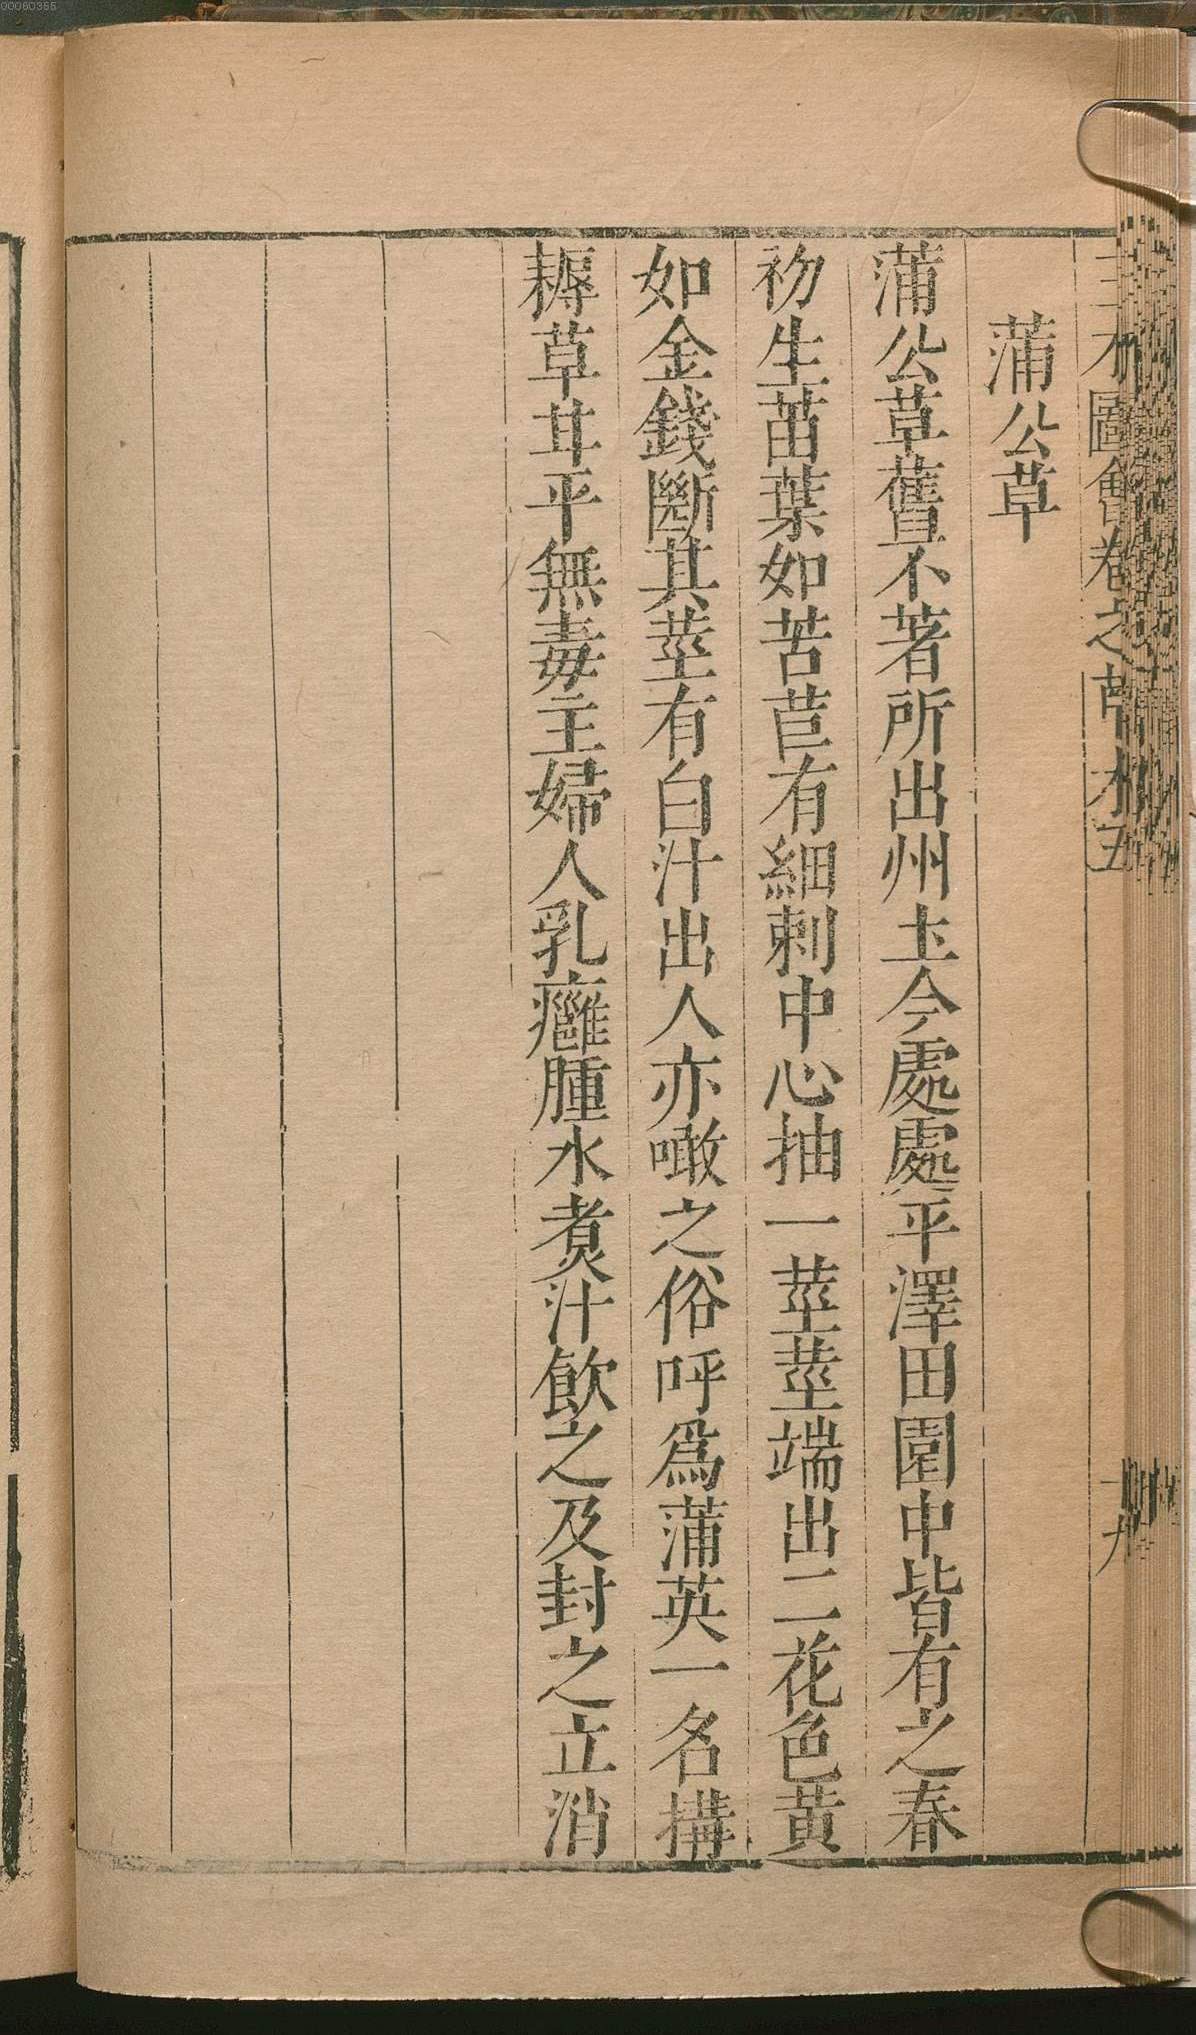 00060355
圖會卷之草木五
十九
蒲公草
蒲公草舊不著所出州土今處處平澤田園中皆有之春
初生苗葉如苦苣有細刺中心抽一莖莖端出二花色黃
如金錢斷其莖有白汁出人亦噉之俗呼爲蒲英一名搆
耨草甘平無毒主婦人乳癰腫水煑汁飲之及封之立消